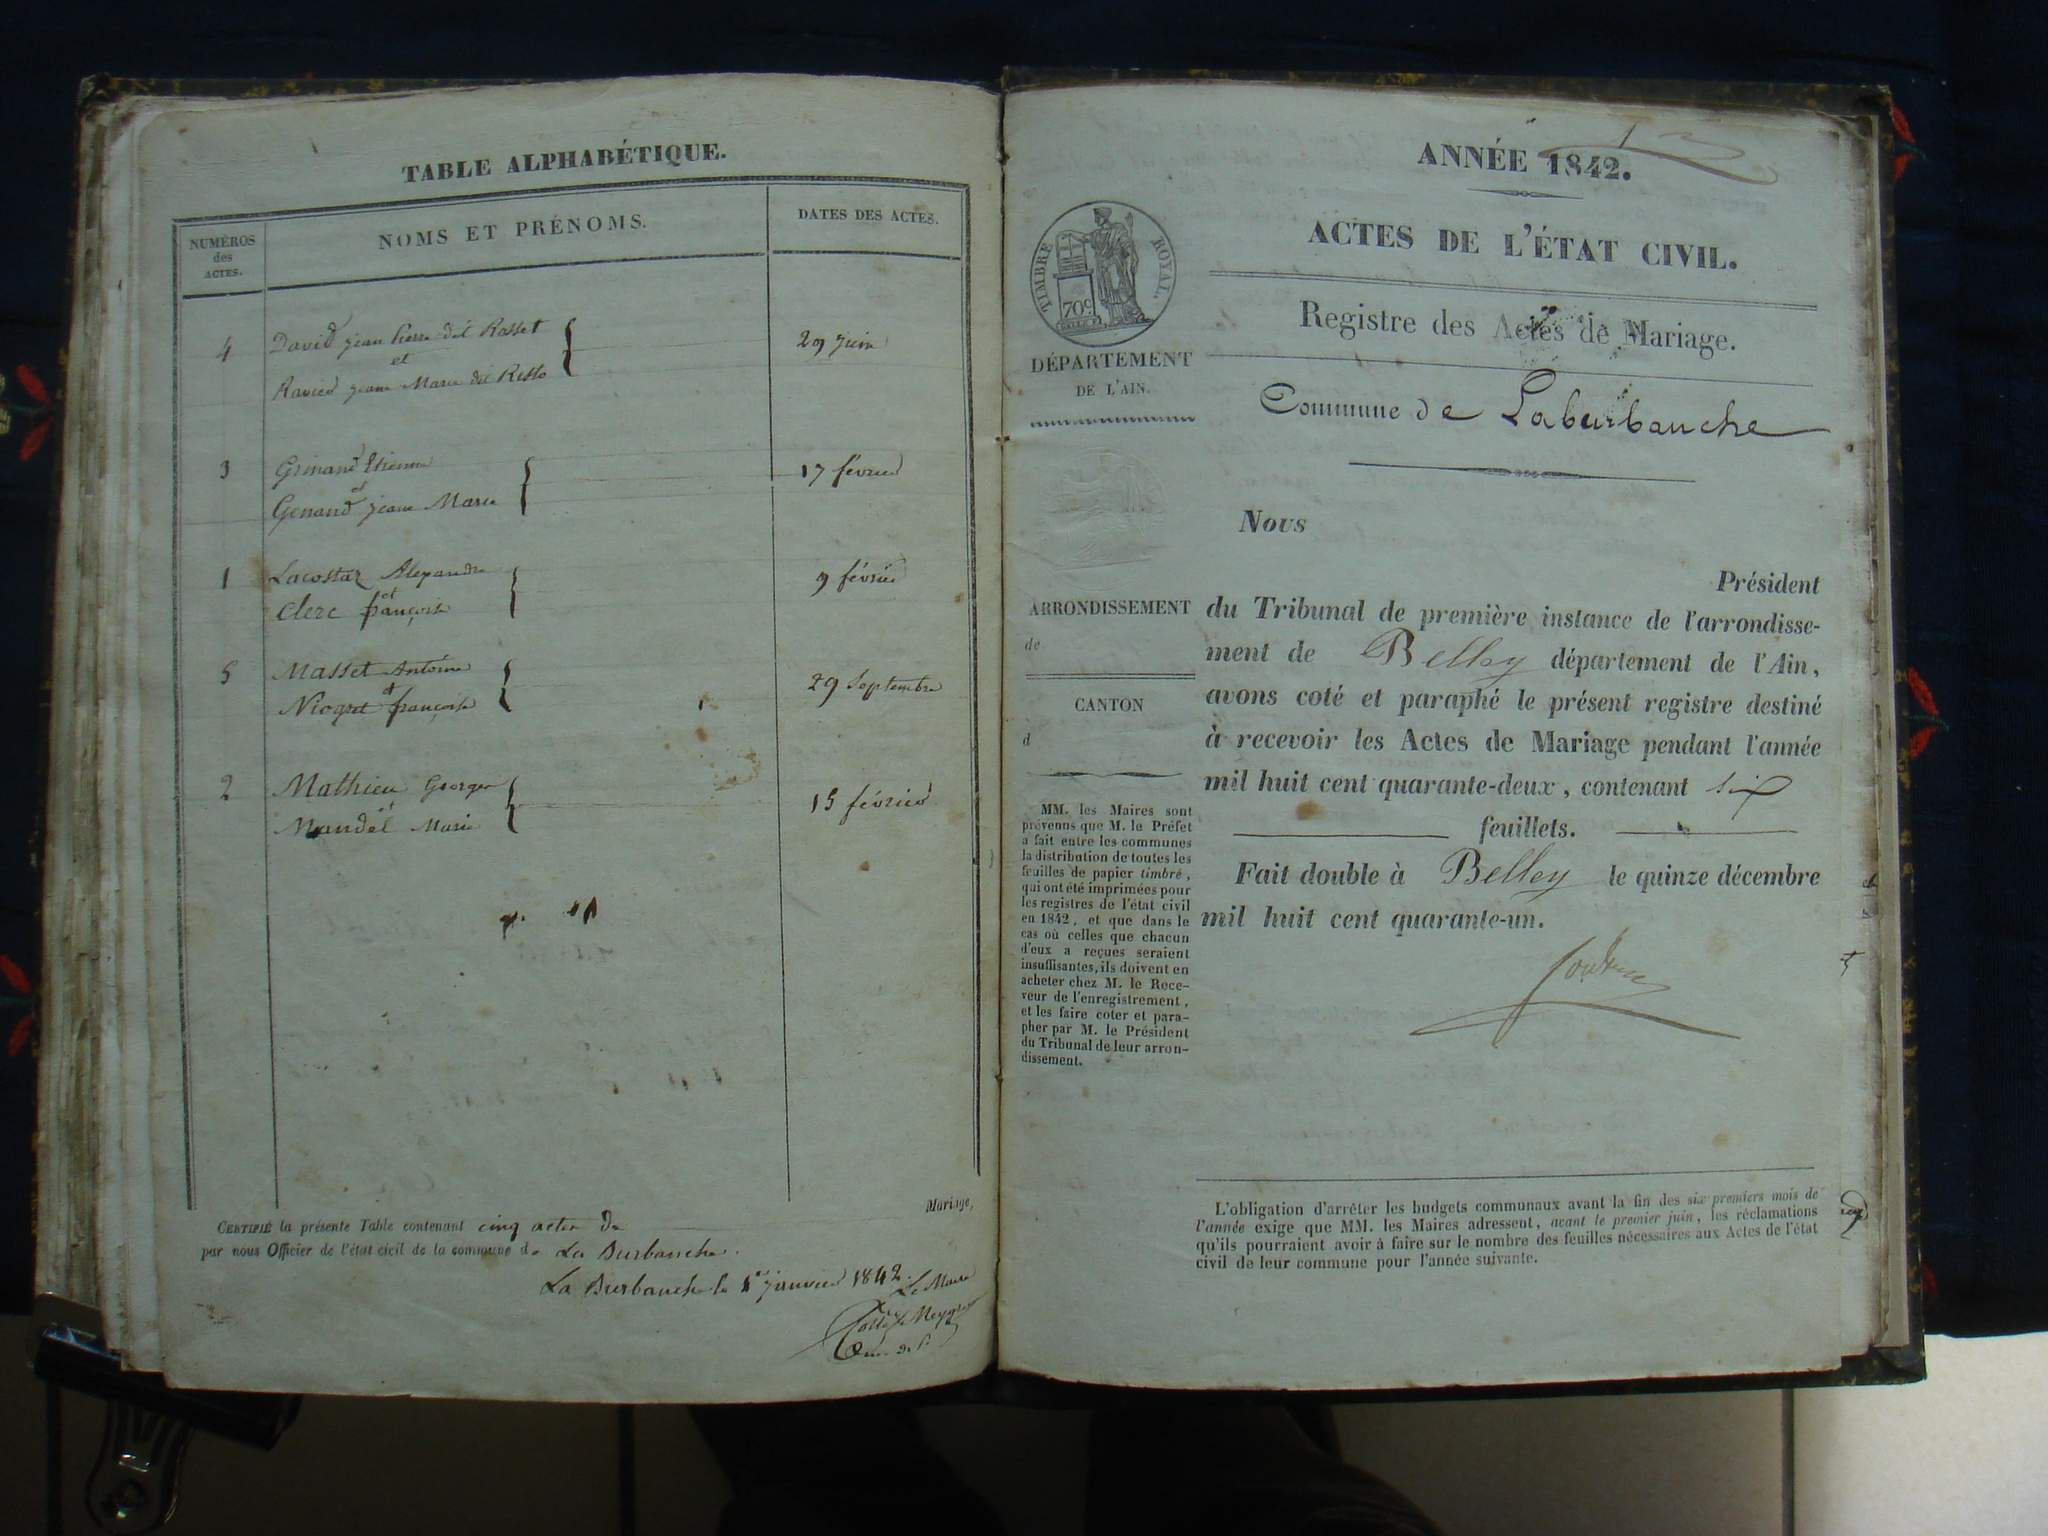 TABLE ALPHABÉTIQUE.
NUMÉROS
des
ACTES.
NOMS ET PRÉNOMS.
DATES DES ACTES.
4
David jean Pierre dit Rasset
et
Ravier jeane Marie dit Reslo
29 juin
3
Grinand Etienne
et
Genand jeane Marie
17 février
1
Lacostaz Alexandre
et
Clerc françoise
9 février
5
Masset Antoine
et
Niogret françoise
29 Septembre
2
Mathieu George
et
Mandel Marie
15 février
Mariage,
CERTIFIÉ la présente Table contenant cinq actes de
par nous Officier de l'état civil de la commune de La Burbanche.
La Burbanche le 1er janvier 1842.
Le Maire
ANNÉE 1842.
ACTES DE L'ÉTAT CIVIL.
TIMBRE ROYAL.
70c
Registre des Actes de Mariage.
DÉPARTEMENT
DE L'AIN.
Commune de Laburbanche
Nous
Président
ARRONDISSEMENT
de
CANTON
d
du Tribunal de première instance de l'arrondisse-
ment de Belley département de l'Ain,
avons coté et paraphé le présent registre destiné
à recevoir les Actes de Mariage pendant l'année
mil huit cent quarante-deux, contenant six
feuillets.
Fait double à Belley le quinze décembre
mil huit cent quarante-un.
MM. les Maires sont
prévenus que M. le Préfet
a fait entre les communes
la distribution de toutes les
feuilles de papier timbré,
qui ont été imprimées pour
les registres de l'état civil
en 1842, et que dans le
cas où celles que chacun
d'eux a reçues seraient
insuffisantes, ils doivent en
acheter chez M. le Rece-
veur de l'enregistrement,
et les faire coter et para-
pher par M. le Président
du Tribunal de leur arron-
dissement.
L'obligation d'arrêter les budgets communaux avant la fin des six premiers mois de
l'année exige que MM. les Maires adressent, avant le premier juin, les réclamations
qu'ils pourraient avoir à faire sur le nombre des feuilles nécessaires aux Actes de l'état
civil de leur commune pour l'année suivante.